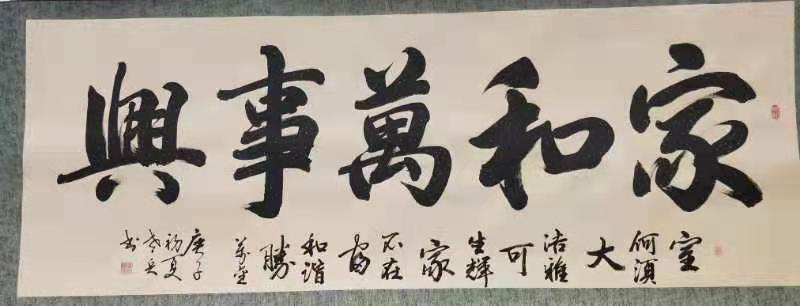 家和萬事興
室何須大洁雅可生輝家不在富和谐勝萬金
庚子初夏
书